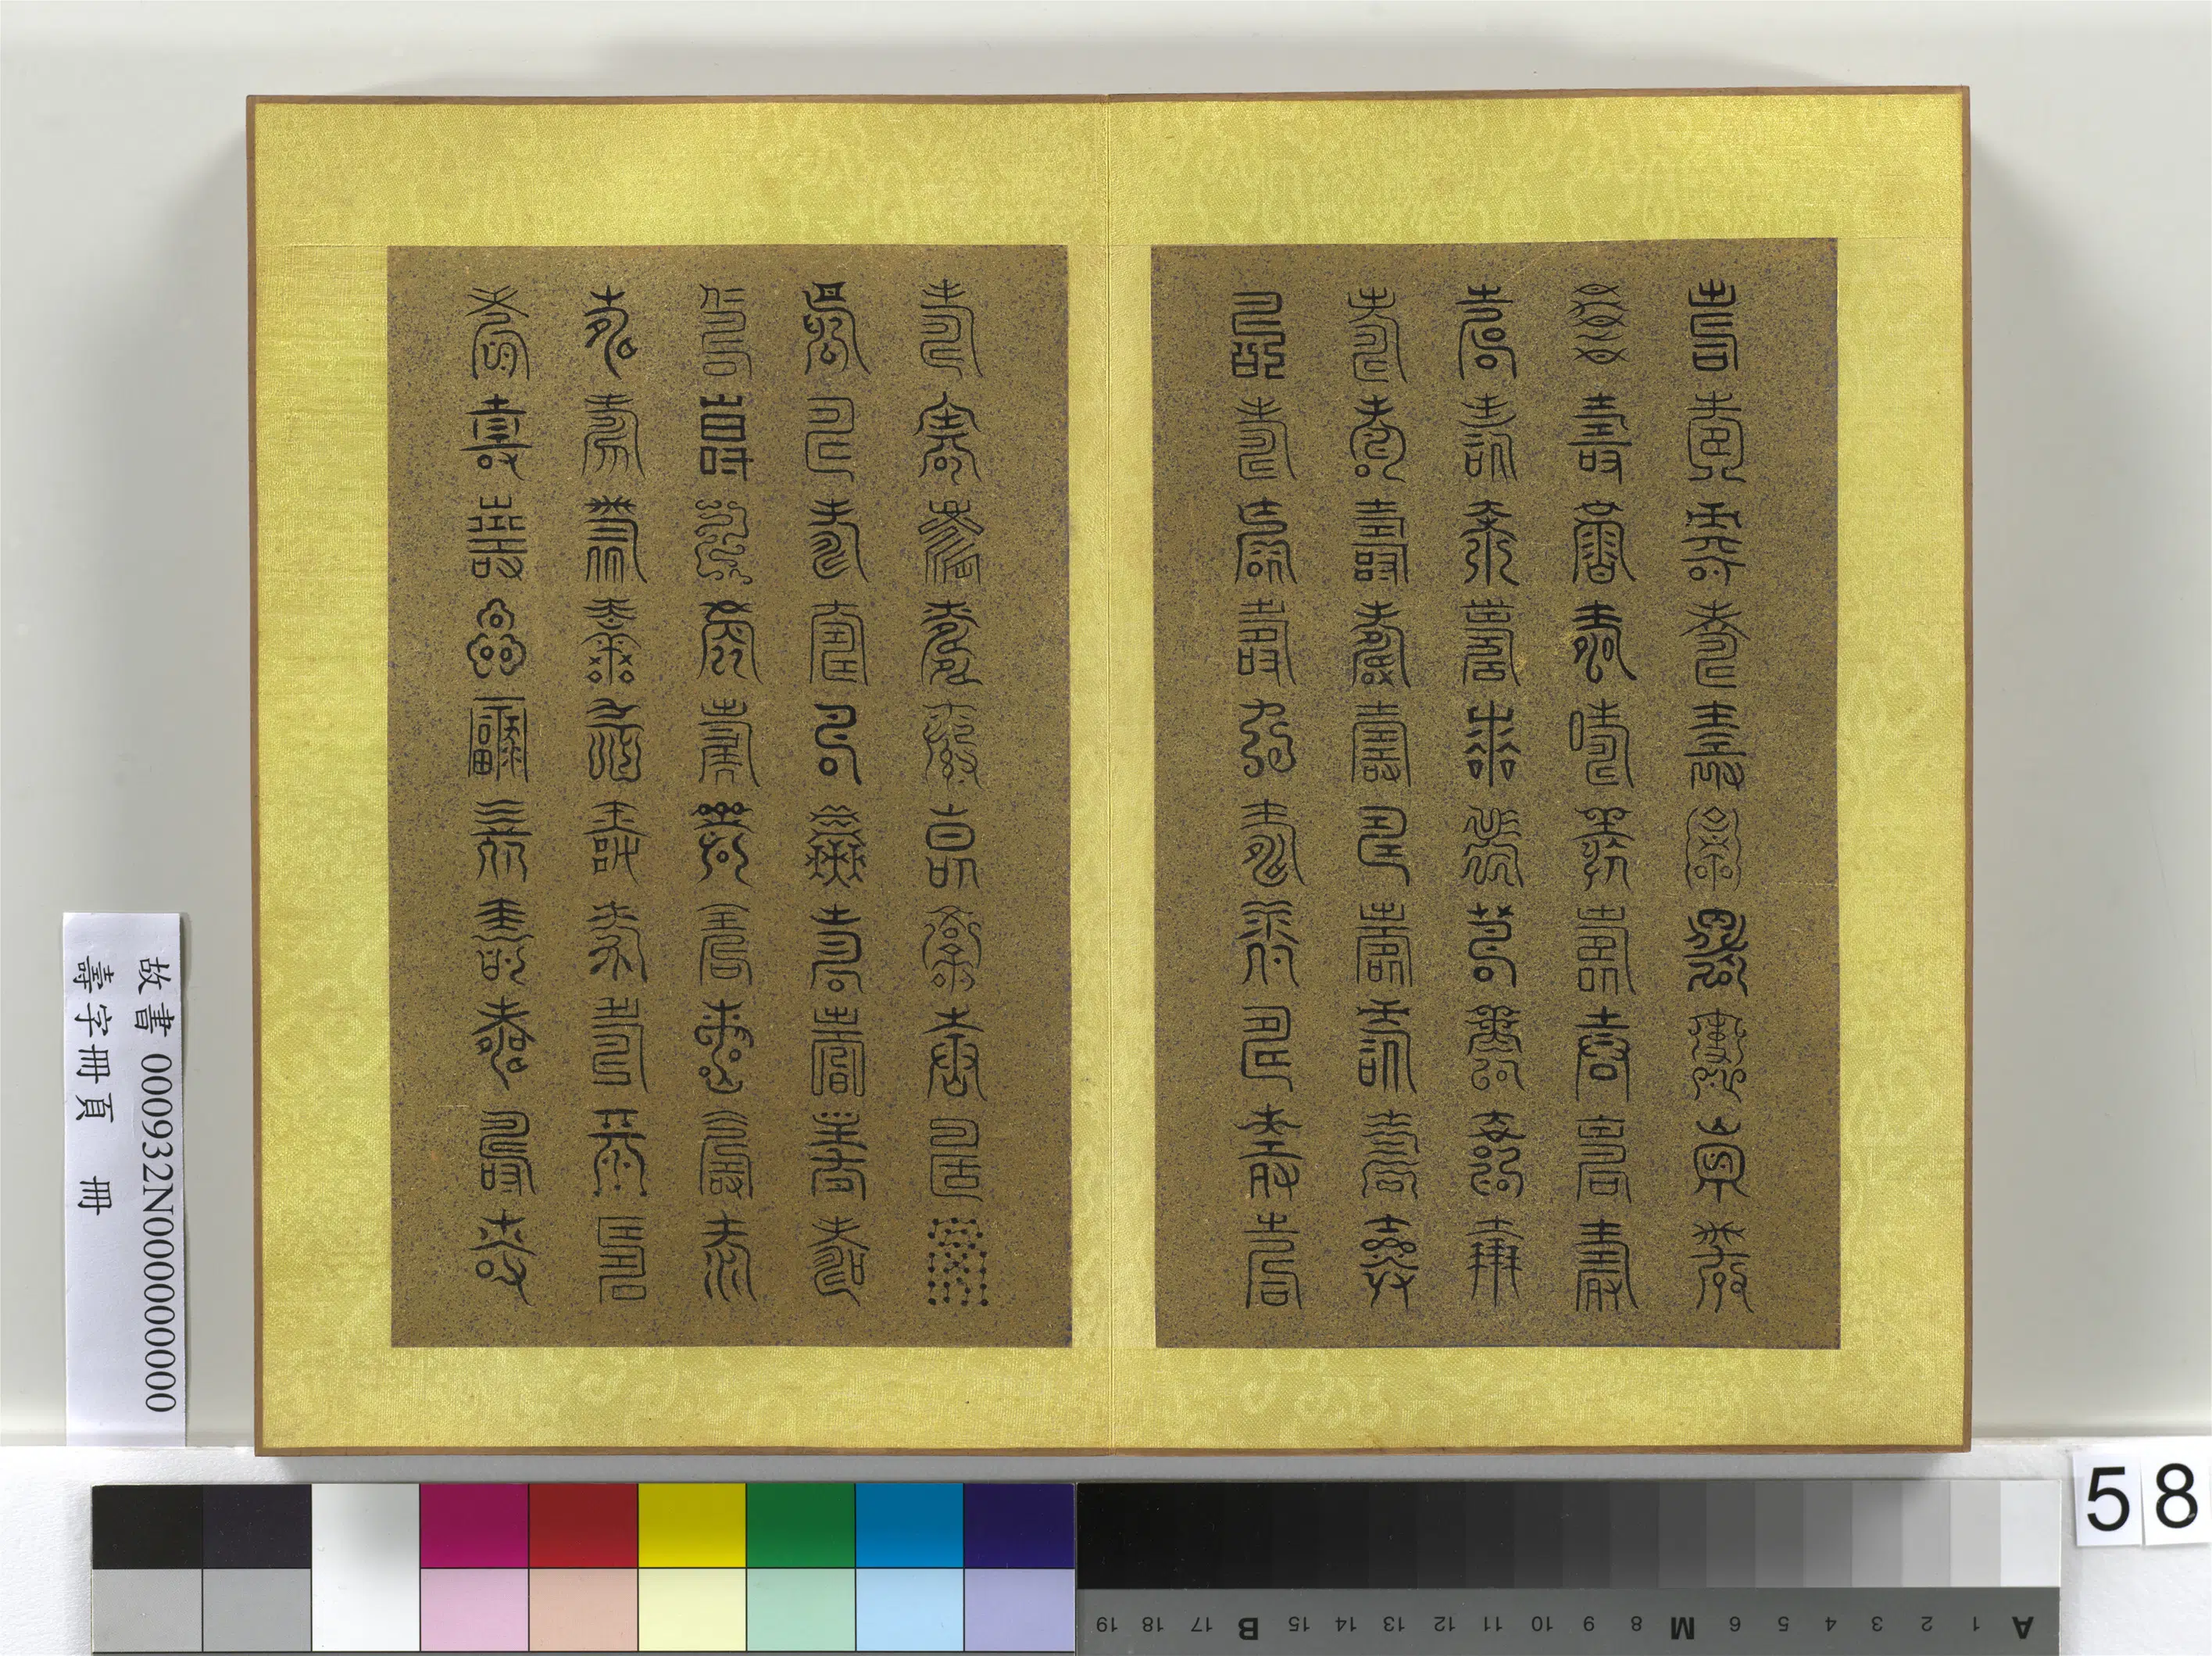 壽壽壽壽壽壽壽壽壽壽
壽壽壽壽壽壽壽壽壽壽
壽壽壽壽壽壽壽壽壽壽
壽壽壽壽壽壽壽壽壽壽
壽壽壽壽壽壽壽壽壽壽
壽壽壽壽壽壽壽壽壽壽
壽壽壽壽壽壽壽壽壽壽
壽壽壽壽壽壽壽壽壽壽
壽壽壽壽壽壽壽壽壽壽
壽壽壽壽壽壽壽壽壽壽
故書 000932N000000000
壽字冊頁 冊
58
A 1 2 3 4 5 6 M 8 9 10 11 12 13 14 15 B 17 18 19